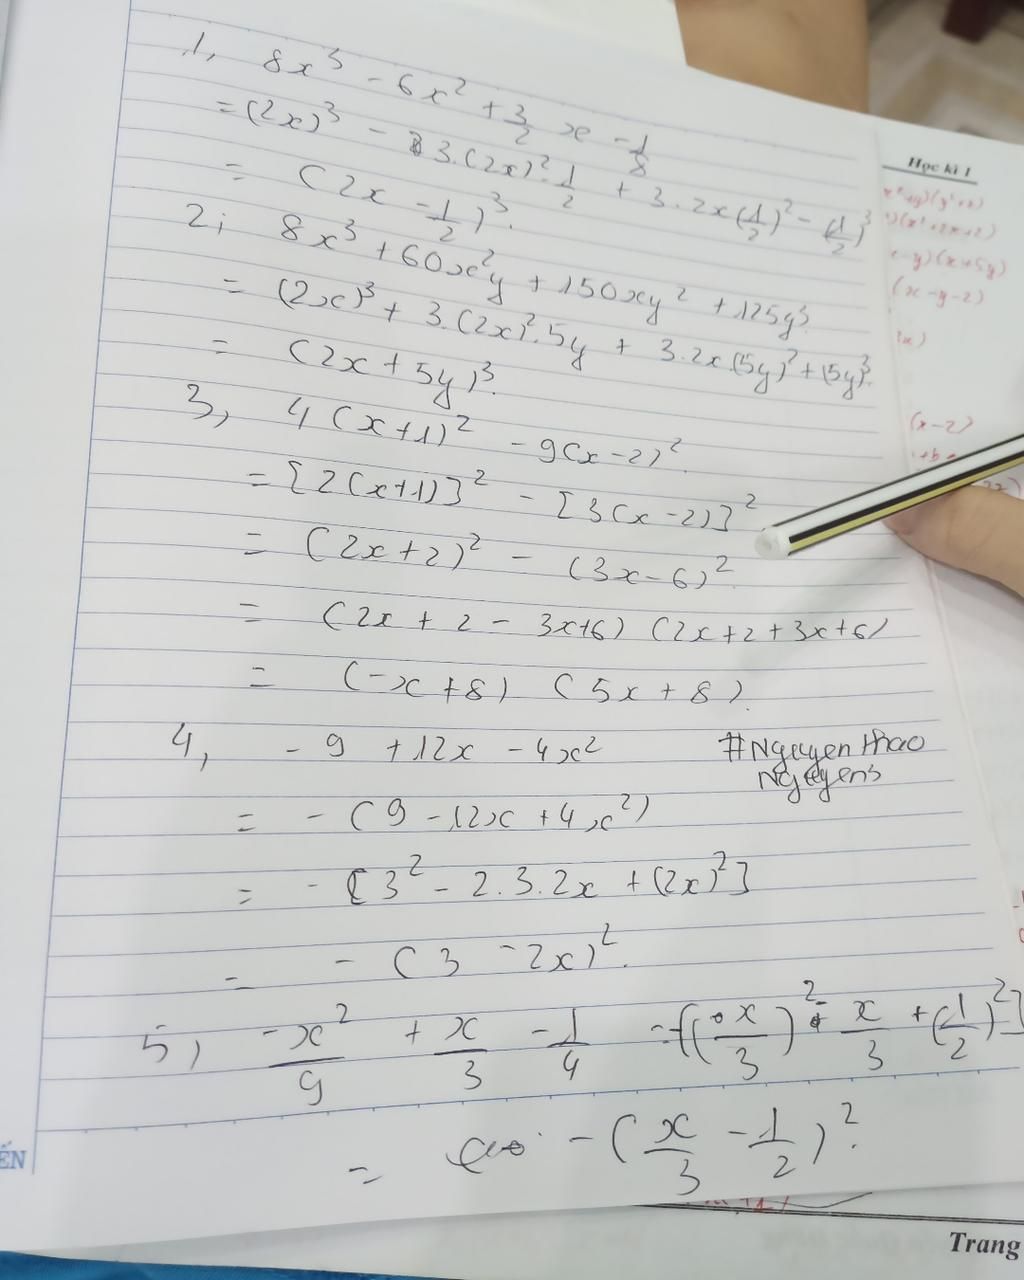 1, 8x³ - 6x² + 3/2 x - 1/8
= (2x)³ - 3.(2x)².1/2 + 3.2x(1/2)² - (1/2)³
= (2x - 1/2)³.
2, 8x³ + 60x²y + 150xy² + 125y³
= (2x)³ + 3.(2x)².5y + 3.2x.(5y)² + (5y)³.
= (2x + 5y)³.
3, 4(x+1)² - 9(x-2)².
= [2(x+1)]² - [3(x-2)]²
= (2x+2)² - (3x-6)².
= (2x + 2 - 3x+6) (2x+2+3x+6)
= (-x +8) (5x + 8).
4, - 9 + 12x - 4x²
#Nguyen thao
Nguyens
= - (9 - 12x + 4x²)
= - [3² - 2.3.2x + (2x)²]
= - (3 - 2x)².
5, -x²/9 + x/3 - 1/4 = -[(x/3)² - x/3 + (1/2)²]
= - (x/3 - 1/2)².
Học kì 1
(y²+2)
(x²+2x+2)
(x+5y)
(x-y-2)
(x-2)
ẾN
Trang